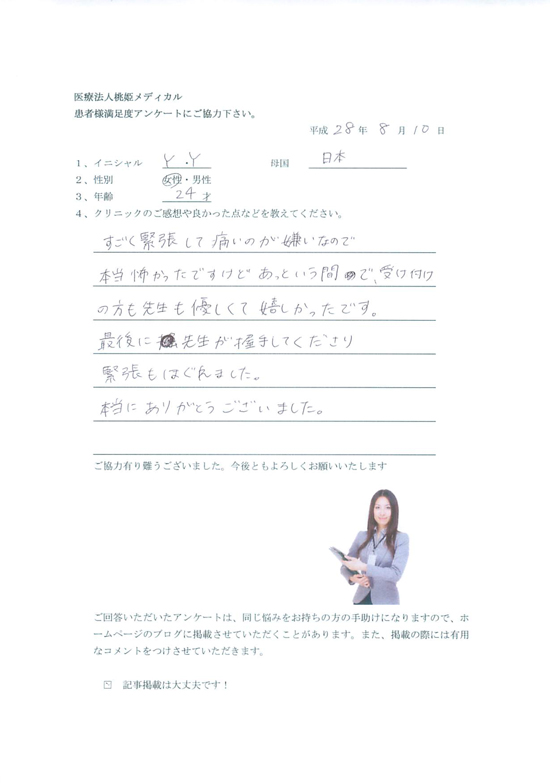 医療法人桃姫メディカル
患者様満足度アンケートにご協力下さい。
平成 28 年 8 月 10 日
1、イニシャル Y.Y 母国 日本
2、性別 女性・男性
3、年齢 24 才
4、クリニックのご感想や良かった点などを教えてください。
すごく緊張して痛いのが嫌いなので
本当怖かったですけど あっという間ので、受け付け
の方も先生も優しくて嬉しかったです。
最後に 先生が握手してくださり
緊張もほぐれました。
本当にありがとうございました。
ご協力有り難うございました。今後ともよろしくお願いいたします
ご回答いただいたアンケートは、同じ悩みをお持ちの方の手助けになりますので、ホ
ームページのブログに掲載させていただくことがあります。また、掲載の際には有用
なコメントをつけさせていただきます。
☑ 記事掲載は大丈夫です！